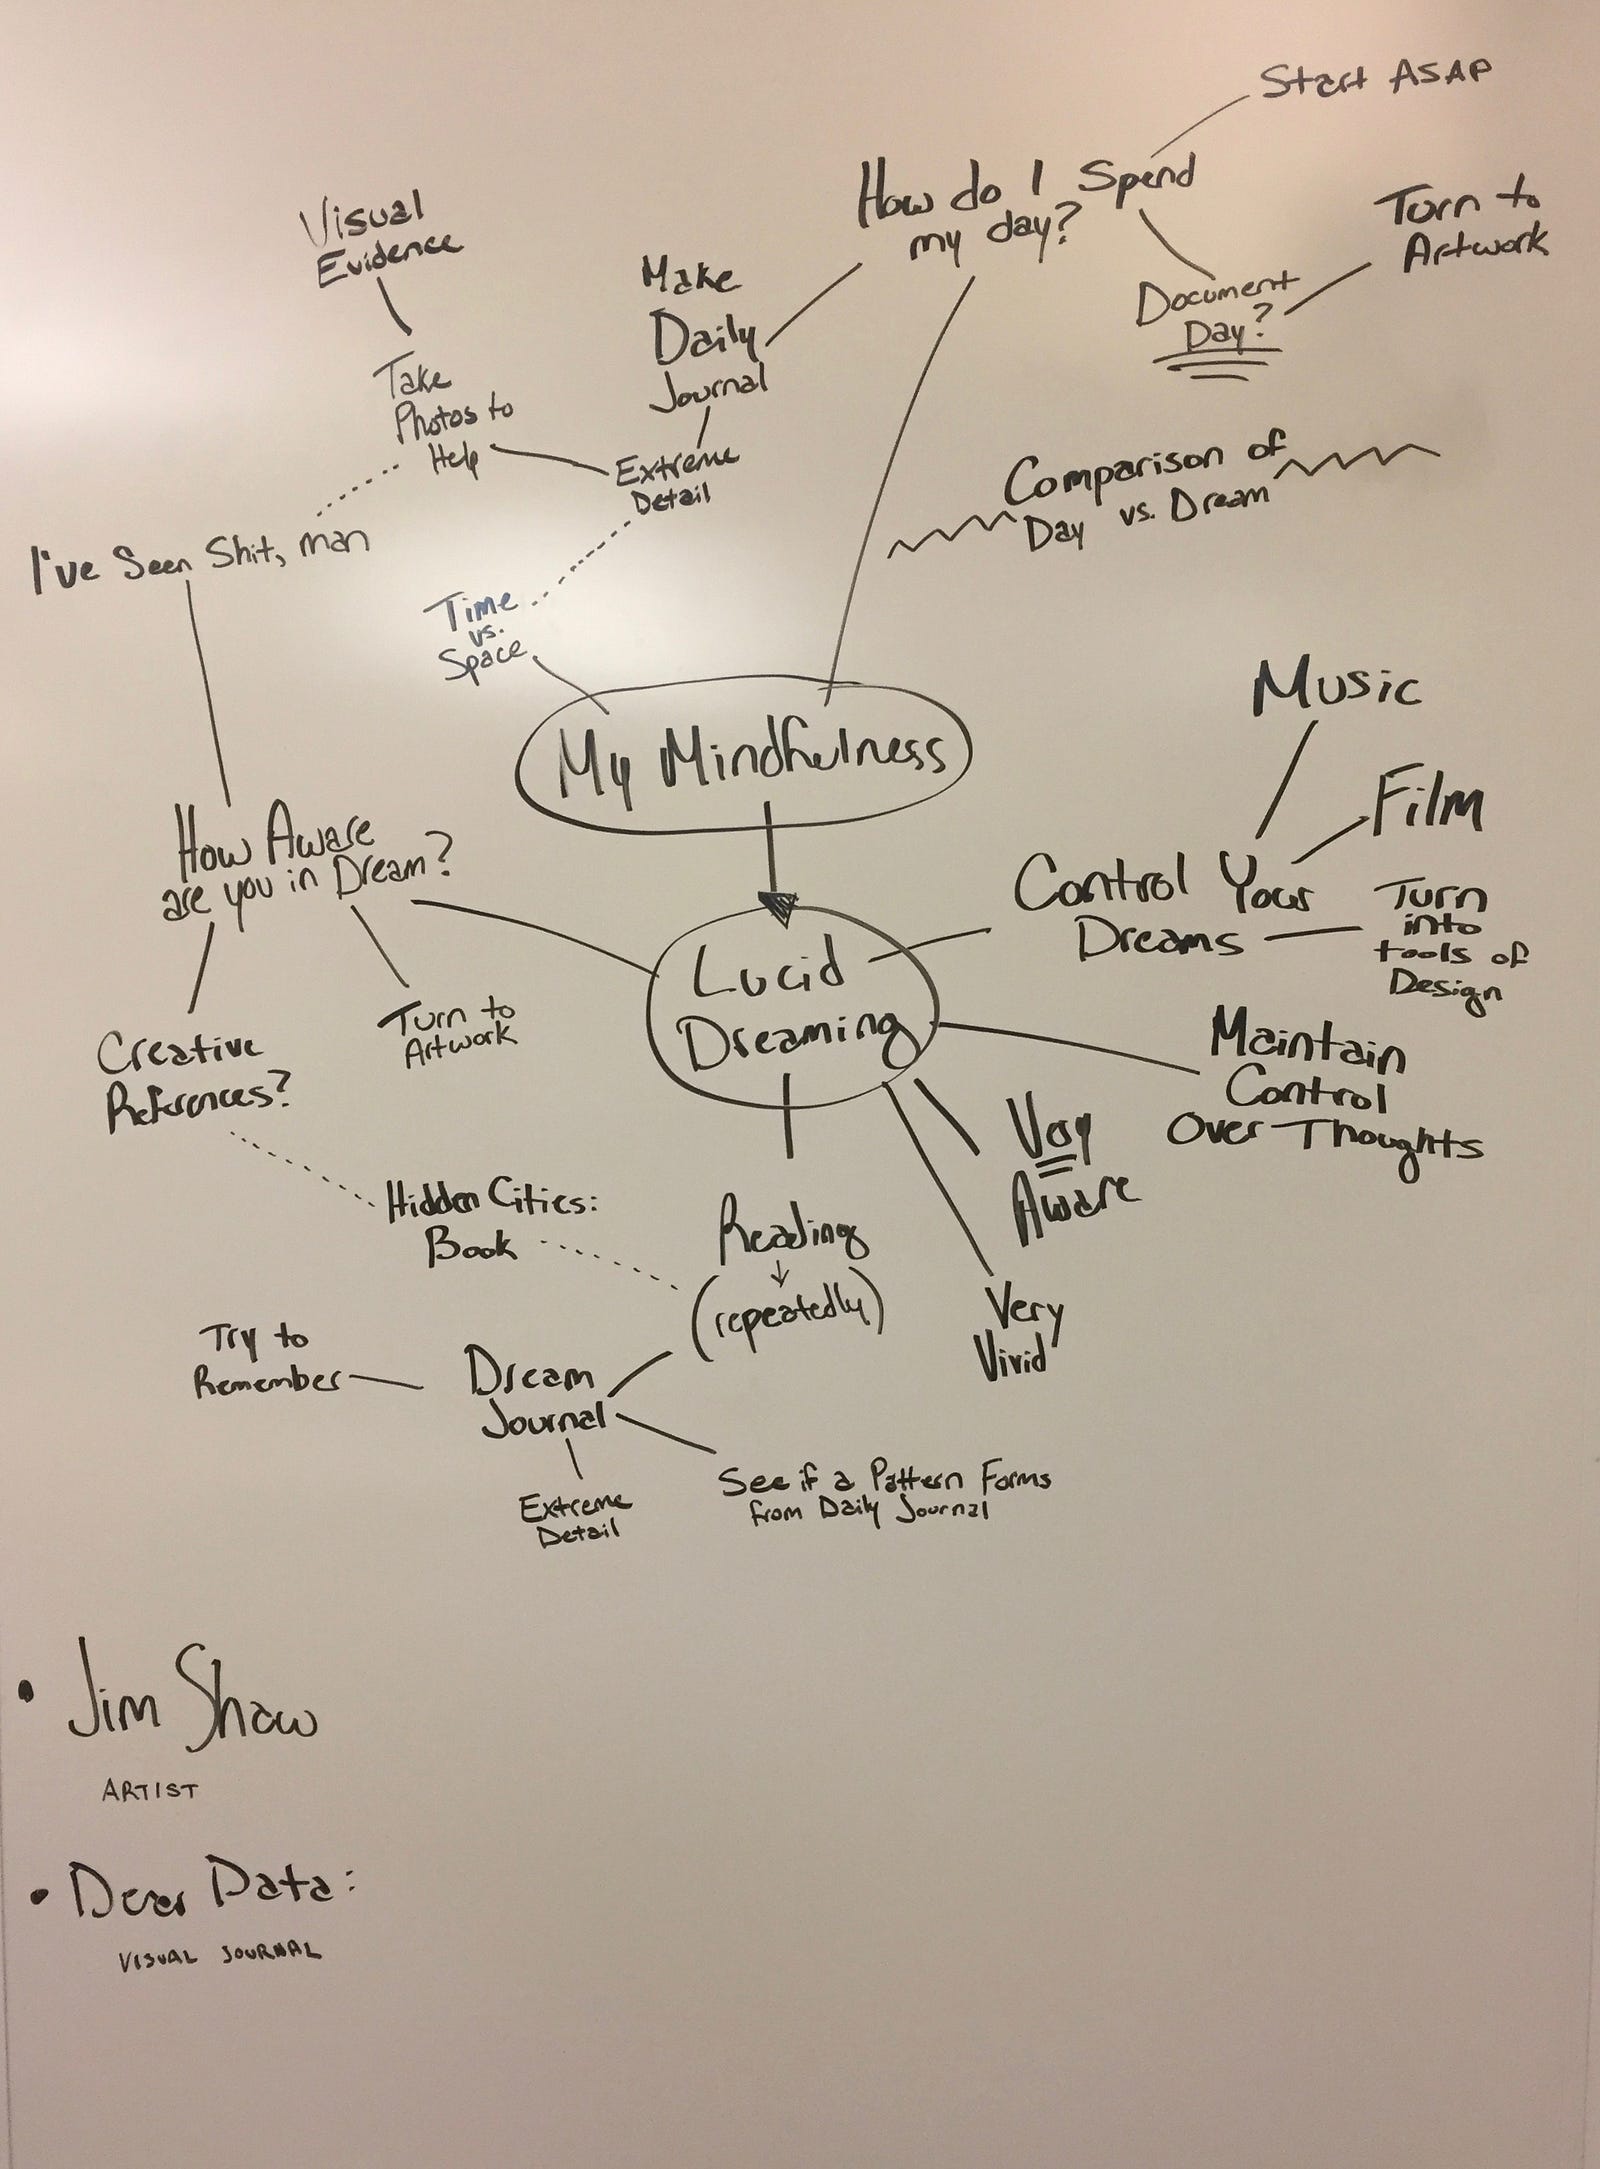 Start ASAP
How do I Spend
my day?
Turn to
Artwork
Document
Day?
Visual
Evidence
Make
Daily
Journal
Take
Photos to
Help
Extreme
Detail
Comparison of
Day vs. Dream
I've Seen Shit, man
Time
vs.
Space
My Mindfulness
Music
Film
Control Your
Dreams
Turn
into
tools of
Design
How Aware
are you in Dream?
Lucid
Dreaming
Creative
References?
Turn to
Artwork
Maintain
Control
Over Thoughts
Very
Aware
Hidden Cities:
Book
Reading
(repeatedly)
Very
Vivid
Try to
Remember
Dream
Journal
Extreme
Detail
See if a Pattern Forms
from Daily Journal
• Jim Shaw
ARTIST
• Dear Data:
VISUAL JOURNAL